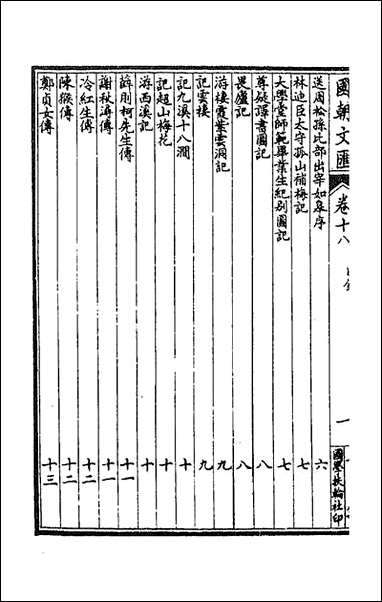 國朝文匯
卷十八
目錄
一
國學扶輪社印
送周松孫比部出宰如皋序 六
林迪臣太守孤山補梅記 七
大學堂師範畢業生紀別圖記 七
尊疑譯書圖記 八
畏廬記 八
游棲霞紫雲洞記 九
記雲棲 九
記九溪十八澗 十
記超山梅花 十
游西溪記 十
薛則柯先生傳 十一
謝秋潯傳 十一
冷紅生傳 十二
陳猴傳 十二
鄭貞女傳 十三